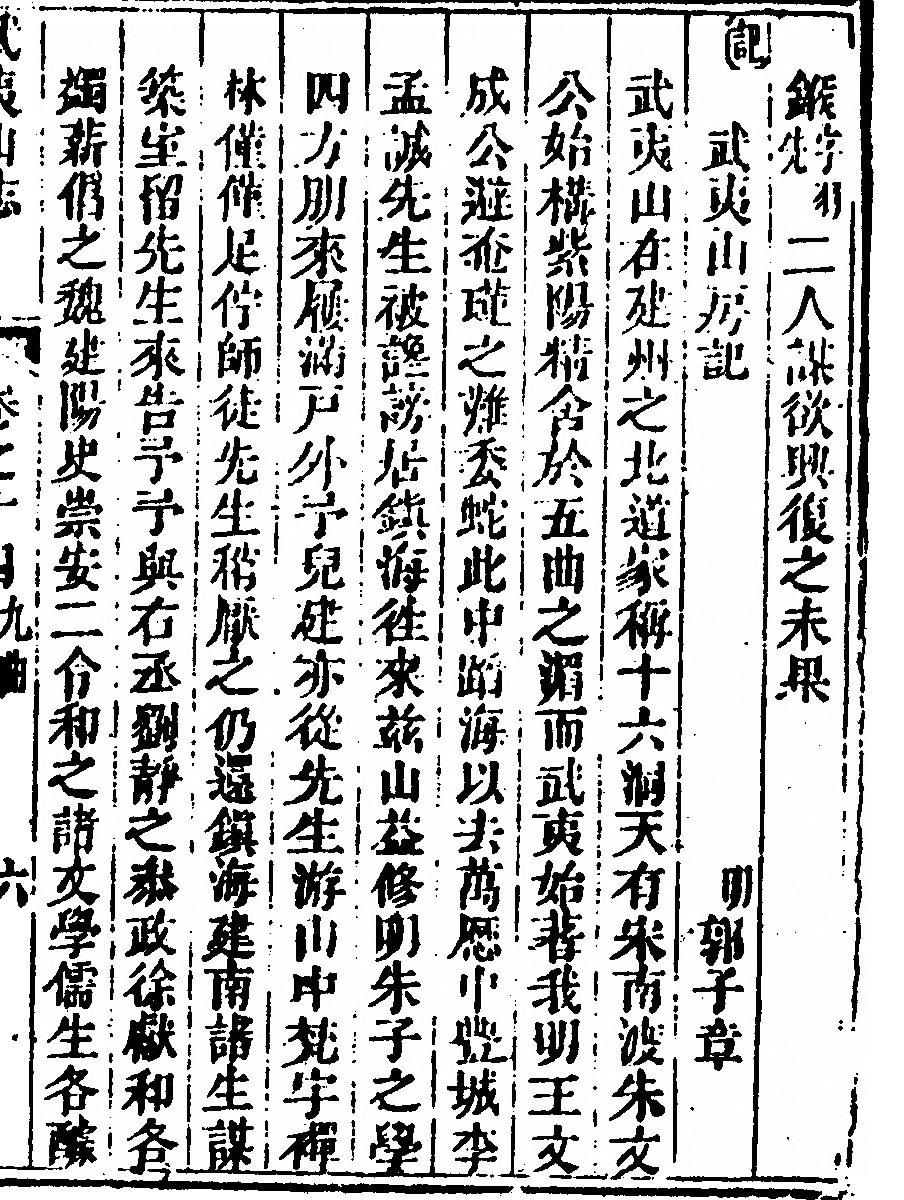 鍭字先羽二人謀欲興復之未果
記
武夷山房記 明郭子章
武夷山在建州之北道家稱十六洞天有宋南渡朱文
公始構紫陽精舍於五曲之湄而武夷始著我明王文
成公避逆瑾之難委蛇此中蹈海以去萬曆中豐城李
孟誠先生被讒謗居鎮海往來茲山益修明朱子之學
四方朋來屨滿戶外予兒建亦從先生游山中梵宇禪
林僅僅足佇師徒先生稍厭之仍還鎮海建南諸生謀
築室留先生來告予予與右丞劉靜之叅政徐獻和各
蠲薪俸之魏建陽史崇安二令和之諸文學儒生各醵
武夷山志 卷之十 九曲 六